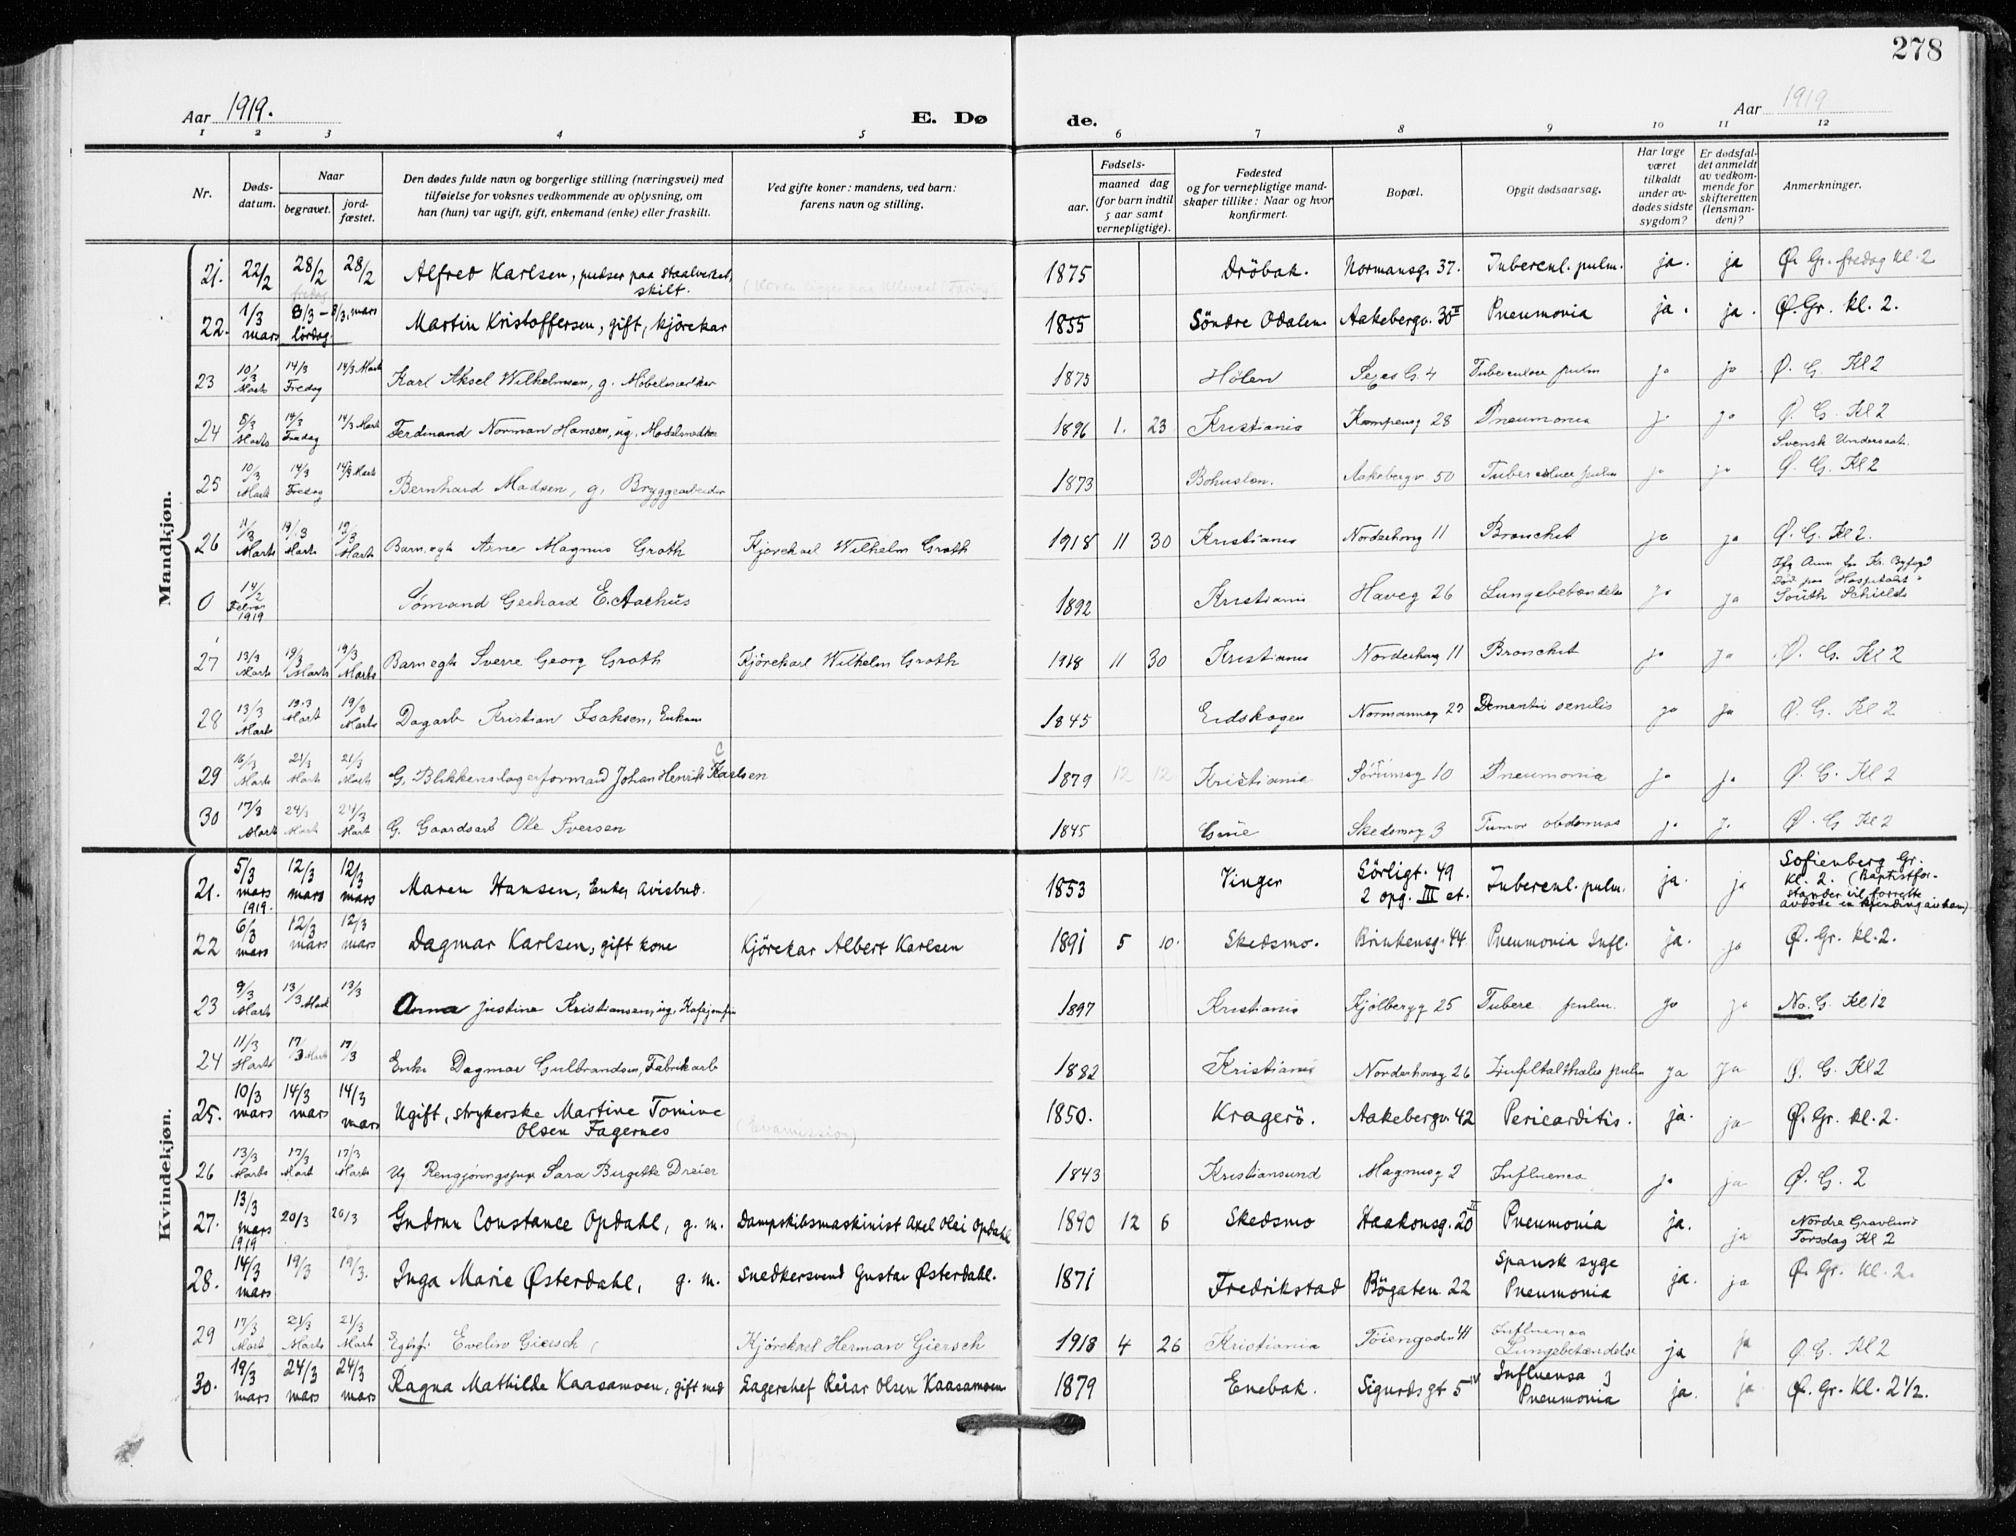 278
Aar 1919.
E. Dø
de.
Aar 1919
1 2 3 4 5 6 7 8 9 10 11 12
Nr.
Døds-
datum.
Naar
begravet.
jord-
fæstet.
Den dødes fulde navn og borgerlige stilling (næringsvei) med
tilføielse for voksnes vedkommende av oplysning, om
han (hun) var ugift, gift, enkemand (enke) eller fraskilt.
Ved gifte koner: mandens, ved barn:
farens navn og stilling.
Fødsels-
aar.
maaned dag
(for barn indtil
5 aar samt
vernepligtige).
Fødested
og for vernepligtige mand-
skaper tillike: Naar og hvor
konfirmert.
Bopæl.
Opgit dødsaarsag.
Har læge
været
tilkaldt
under av-
dødes sidste
sygdom?
Er dødsfal-
det anmeldt
av vedkom-
mende for
skifteretten
(lensman-
den)?
Anmerkninger.
Mandkjøn.
21. 22/2 28/2 28/2 Alfred Karlsen, pudser paa staalverket, 1875 Dröbak. Normansg. 37. Tubercul. pulm. ja. ja Ø. Gr. fredag kl. 2
fredag skilt.
22. 1/3 mars 8/3 – 8/3, mars lördag. Martin Kristoffersen, gift, kjörekar 1855 Söndre Odalen. Aakebergv. 30 II Pneumonia ja. ja. Ø. Gr. kl. 2.
23 10/3 Marts 14/3 Fredag 14/3 Mart Karl Aksel Wilhelmsen, g. 1875 Hölen G. 4 pulm ja ja Ø. G. Kl 2
24 5/3 Marts 14/3 Fredag 14/3 Mart Ferdinand Norman Hansen, ug. 1896 1. 23 Kristiania Kampeng 28 Pneumonia ja ja Ø G. Kl 2
Svensk Undersaat.
25 10/3 Mart 14/3 Fredag 14/3 Mart Bernhard Madsen, g. Bryggearbeider 1873 Bohuslen. Aakebergv 50 pulm ja ja Ø. G. Kl 2
26 11/3 Marts 19/3 Marts 19/3 Marts Barn, egte Arne Magnus Groth Kjörekarl Wilhelm Groth 1918 11 30 Kristiania Norderhovg 11 Bronchit ja ja Ø. G. Kl 2.
0 14/2 Febru 1919 Sömand Gerhard E. Aarhus 1892 Kristiania Haveg 26 Lungebetændelse ja ja
Ifg Anm fra Kr. Byfogd
Död paa Hospitalet i
South Schields
27 13/3 Marts 19/3 Marts 19/3 Marts Barn egte Sverre Georg Groth Kjörekarl Wilhelm Groth 1918 11 30 Kristiania Norderhovg 11 Bronchit ja ja Ø. G. Kl 2
28 13/3 Mart 19.3 Mart 19/3 Marts Dagarb Kristian Isaksen, Enkem 1845 Eidskogen Normannsg 27 Dementia senilis ja ja Ø. G. Kl 2
29 16/3 Marts 21/3 Mart 21/3 Mart G. Blikkenslagerformand Johan Henrik Karlsen 1879 12 12 Kristiania Sörumsg 10 Pneumonia ja ja Ø. G. Kl 2
30 17/3 Mart 24/3 Mart 24/3 Mart G. Gaardsarb Ole Iversen 1845 Grue Skedsmog 3 Tumor abdomnis ja ja Ø. G Kl 2
Kvindekjøn.
21. 5/3 mars 1919. 12/3 mars 12/3 mars Maren Hansen, Enke, Avisbud. 1853 Vinger Sörligt. 49 2 opg. III et. Tubercul. pulm. ja. ja
Sofienberg Gr.
kl. 2. (Baptistfor-
stander vil forrette
avdöde en kjending av ham)
22 6/3 mars 12/3 mars 12/3 mars Dagmar Karlsen, gift kone Kjörekar Albert Karlsen 1891 5 10. Skedsmo. Brinkensg. 44 Pneumonia Infl. ja. ja Ø. Gr. kl. 2.
23 9/3 Marts 13/3 Mart 13/3 Anna Justine Kristiansen, ug. 1897 Kristiania Kjölbergg 25 Tuberc. pulm. ja ja No. G. Kl 12
24 11/3 Marts 17/3 Marts 17/3 Enke Dagmar Gulbrandsen, Fabrikarb 1882 Kristiania Norderhovsg 26 pulm ja ja Ø. G. Kl 2
25. 10/3 mars 14/3 mars 14/3 mars Ugift, strykerske Martine Tomine (Evamission) 1850. Kragerö. Aakebergv. 42 Pericarditis. ja. ja Ø. Gr. kl. 2.
Olsen Fagernes
26 13/3 Marts 17/3 Mart 17/3 Marts Ug Rengjöringsjen Sara Birgitte Dreier 1843 Kristiansund Magnusg 2 Influenca ja ja Ø. G. 2
27. 13/3 mars 1919 20/3 20/3 Gudrun Constance Opdahl, g. m. Dampskibsmaskinist Axel Olai Opdahl 1890 12 6 Skedsmo Haakonsg. 20 II Pneumonia ja. ja
Nordre Gravlund
Torsdag Kl 2
28. 14/3 mars 19/3 19/3. Inga Marie Østerdahl, g. m. Snedkersvend Gustav Østerdahl. 1871 Fredrikstad Bögaten 22 Spansk syge Pneumonia ja. ja Ø. Gr. kl. 2.
29 17/3 Mart 21/3 Marts 21/3 Marts Evelin Giersch Kjörekarl Herman Giersch 1918 4 26 Kristiania Töiengaden 41 Influensa Lungebetændelse ja ja Ø G. Kl 2
30. 19/3 mars 24/3 mars 24/3 mars Ragna Mathilde Kaasamoen, gift med Lagerchef Reiar Olsen Kaasamoen 1879 Enebak. Sigurdsgt 5 IV Influensa, Pneumonia ja. ja Ø. Gr. kl. 2 1/2.